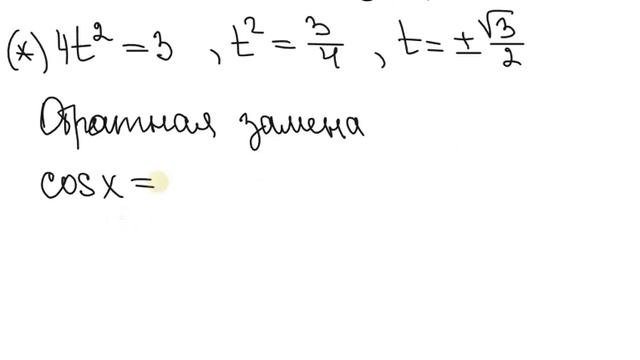 (*) 4t² = 3 , t² = 3/4 , t = ± √3/2
Обратная замена
cos x =